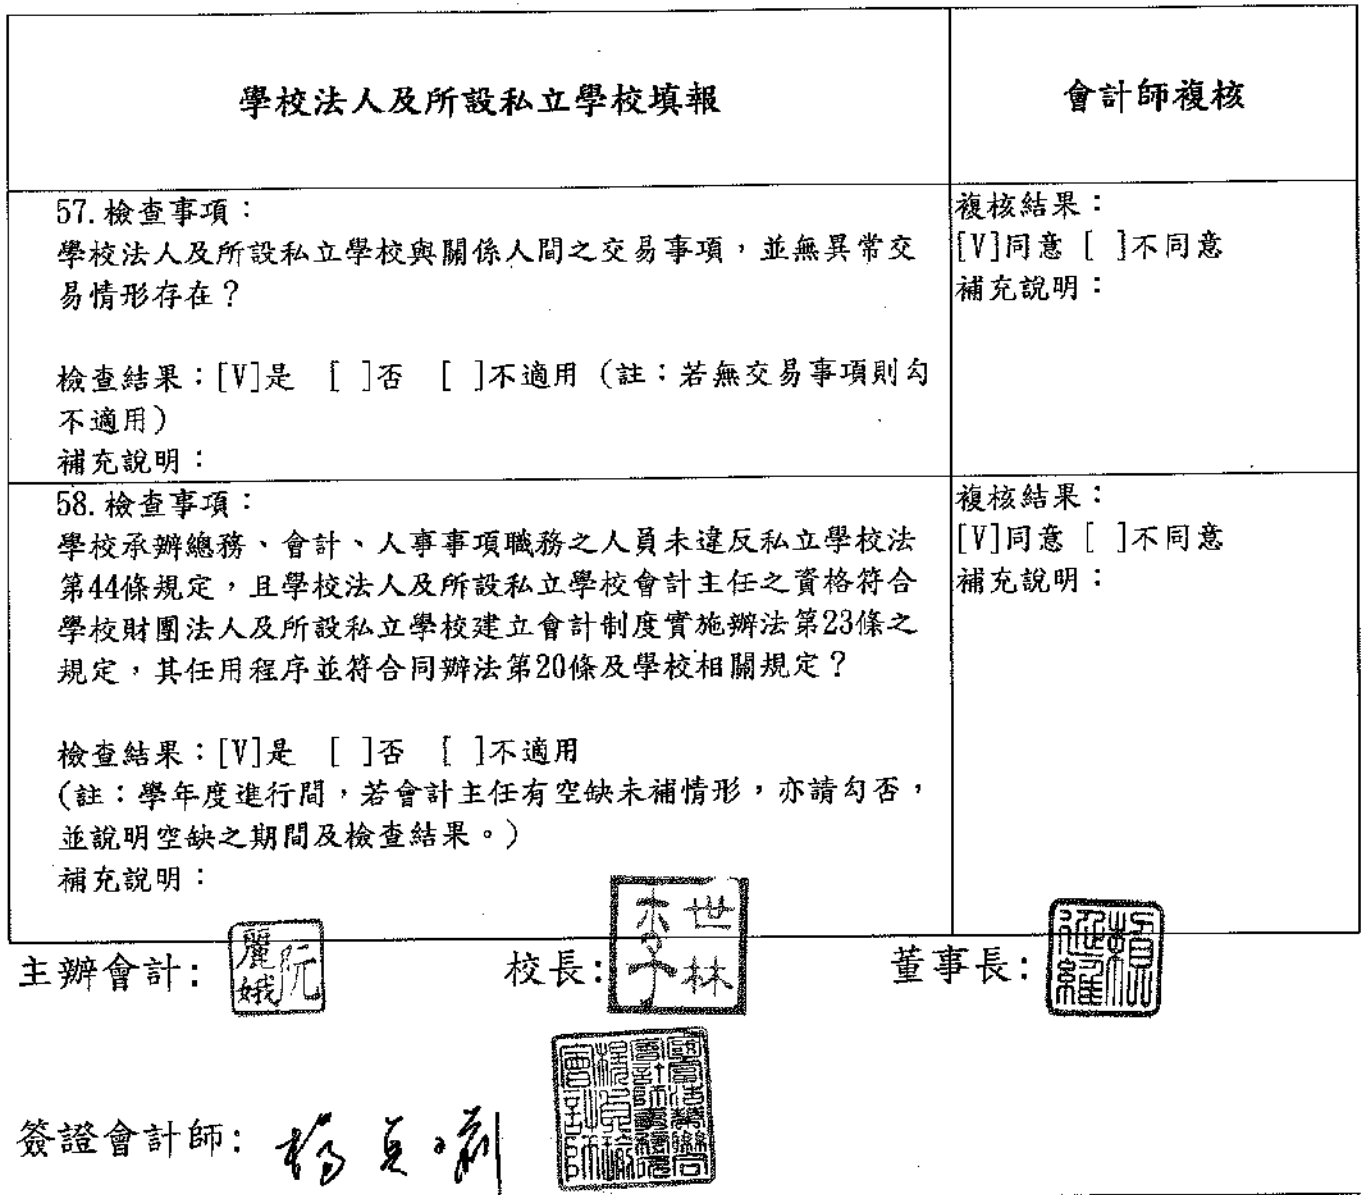 學校法人及所設私立學校填報
會計師複核
57.檢查事項：
學校法人及所設私立學校與關係人間之交易事項，並無異常交
易情形存在？
檢查結果：[V]是 [ ]否 [ ]不適用（註：若無交易事項則勾
不適用）
補充說明：
複核結果：
[V]同意 [ ]不同意
補充說明：
58.檢查事項：
學校承辦總務、會計、人事事項職務之人員未違反私立學校法
第44條規定，且學校法人及所設私立學校會計主任之資格符合
學校財團法人及所設私立學校建立會計制度實施辦法第23條之
規定，其任用程序並符合同辦法第20條及學校相關規定？
檢查結果：[V]是 [ ]否 [ ]不適用
(註：學年度進行間，若會計主任有空缺未補情形，亦請勾否，
並說明空缺之期間及檢查結果。)
補充說明：
複核結果：
[V]同意 [ ]不同意
補充說明：
主辦會計: 阮麗娥
校長: 李世林
董事長:
簽證會計師: 楊